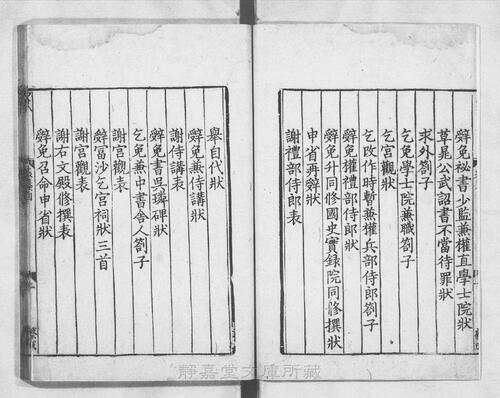 辭免祕書少監兼權直學士院狀
草晁公武詔書不當待罪狀
求外劄子
乞免學士院兼職劄子
乞宫觀狀
乞改作時暫兼權兵部侍郎劄子
辭免權禮部侍郎狀
辭免升同修國史實錄院同脩撰狀
申省再辭狀
謝禮部侍郎表
舉自代狀
辭免兼侍講狀
謝侍講表
辭免書吳璘碑狀
乞免兼中書舍人劄子
謝宫觀表
辭冨沙乞宫祠狀三首
謝宫觀表
謝右文殿修撰表
辭免召命申省狀
靜嘉堂文庫所藏